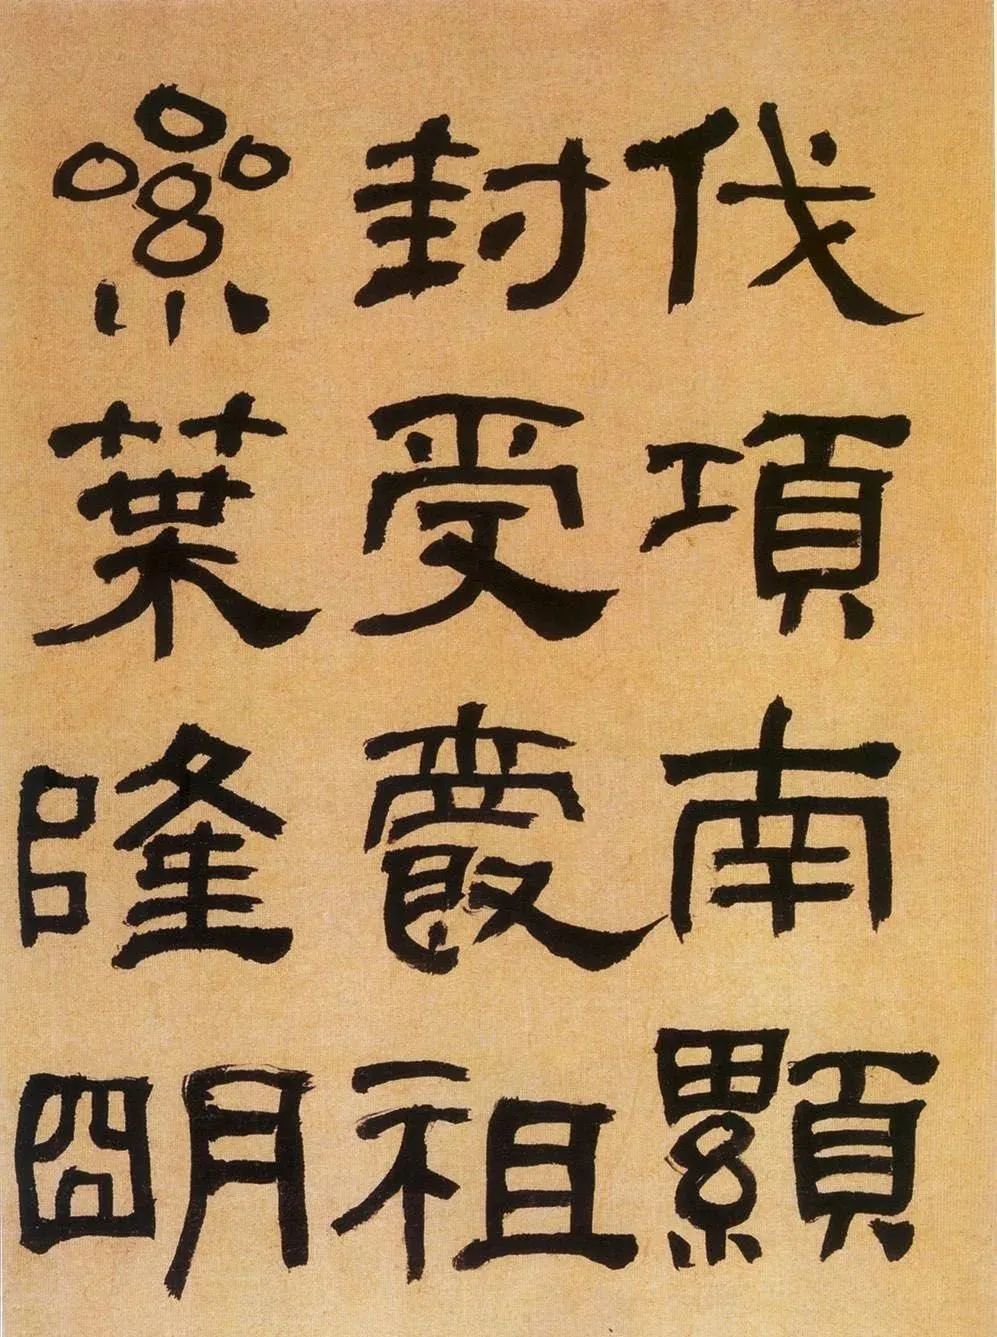 伐項南顯
封受慶祖
絫葉隆朙